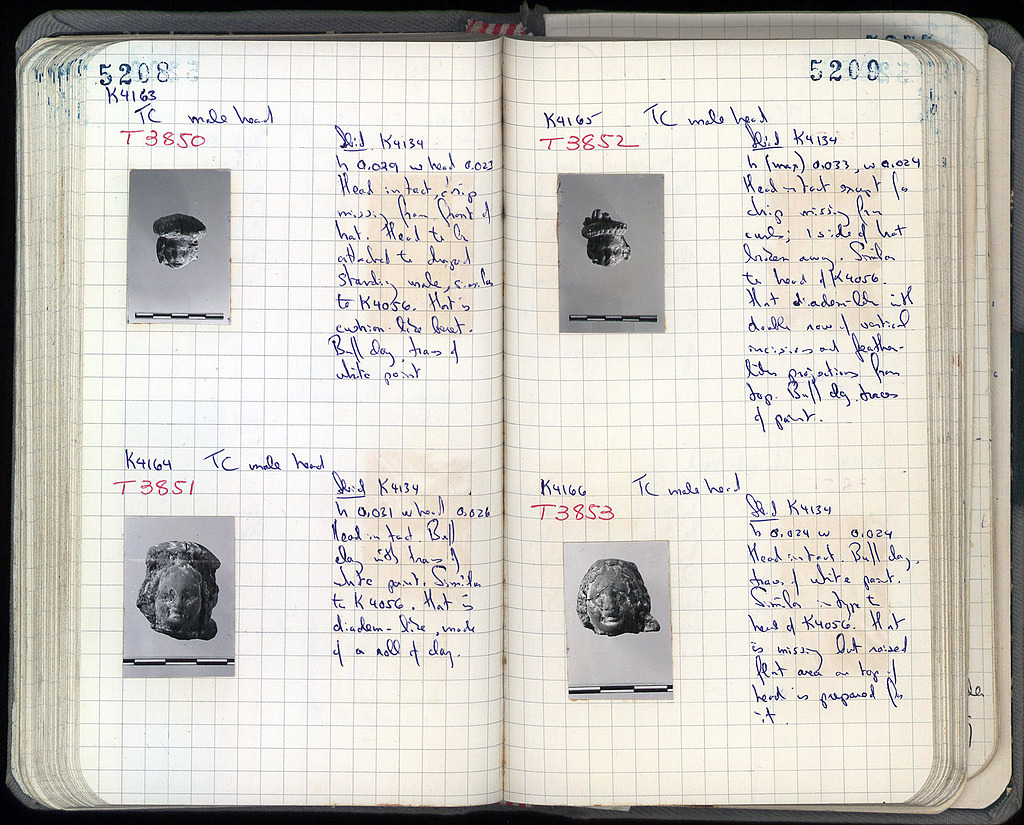 5208
K4163
TC male head
T3850
Ibid K4134
h 0.029 w head 0.023
Head intact, chip
missing from front of
hat. Head to be
attached to draped
standing male, similar
to K4056. Hat is
cushion-like beret.
Buff clay, traces of
white paint
K4164 TC male head
T3851
Ibid K4134
h 0.031 w head 0.026
Head intact. Buff
clay with traces of
white paint. Similar
to K4056. Hat is
diadem-like, made
of a roll of clay.
5209
K4165 TC male head
T3852
Ibid K4134
h (max) 0.033, w 0.024
Head intact except for
chip missing from
curls; 1 side of hat
broken away. Similar
to head of K4056.
Hat diadem-like with
double row of vertical
incisions and feather-
like projections from
top. Buff clay, traces
of paint.
K4166 TC male head
T3853
Ibid K4134
h 0.024 w 0.024
Head intact. Buff clay,
traces of white paint.
Similar in type to
head of K4056. Hat
is missing but raised
flat area on top of
head is prepared for
it.